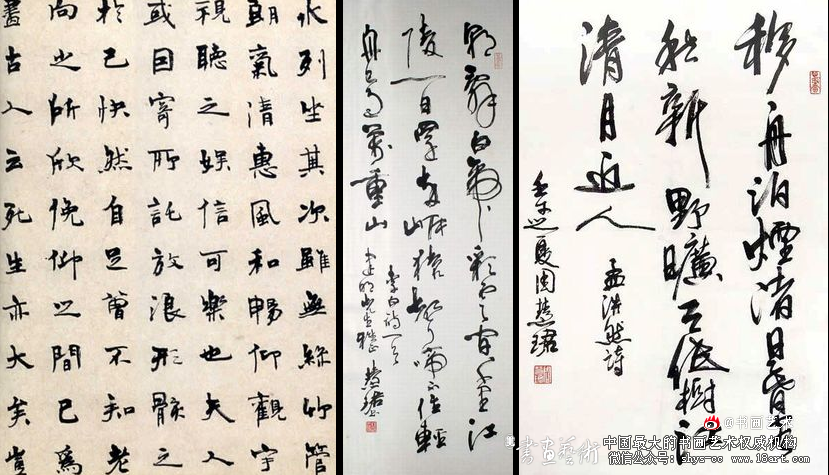 水列坐其次雖無絲竹管
朗氣清惠風和暢仰觀宇
視聽之娛信可樂也夫人
或因寄所託放浪形骸之
於己快然自足曾不知老
向之所欣俛仰之間已為
盡古人云死生亦大矣豈
朝辭白帝彩雲間千里江
陵一日還兩岸猿聲啼不住輕
舟已過萬重山
李白詩一首
慧珺
移舟泊煙渚日暮客
愁新野曠天低樹江
清月近人
孟浩然詩
之夏周慧珺
@书画艺术
書画藝術
中国最大的书画艺术权威机构
微信公众号：shys-cc www.18art.com